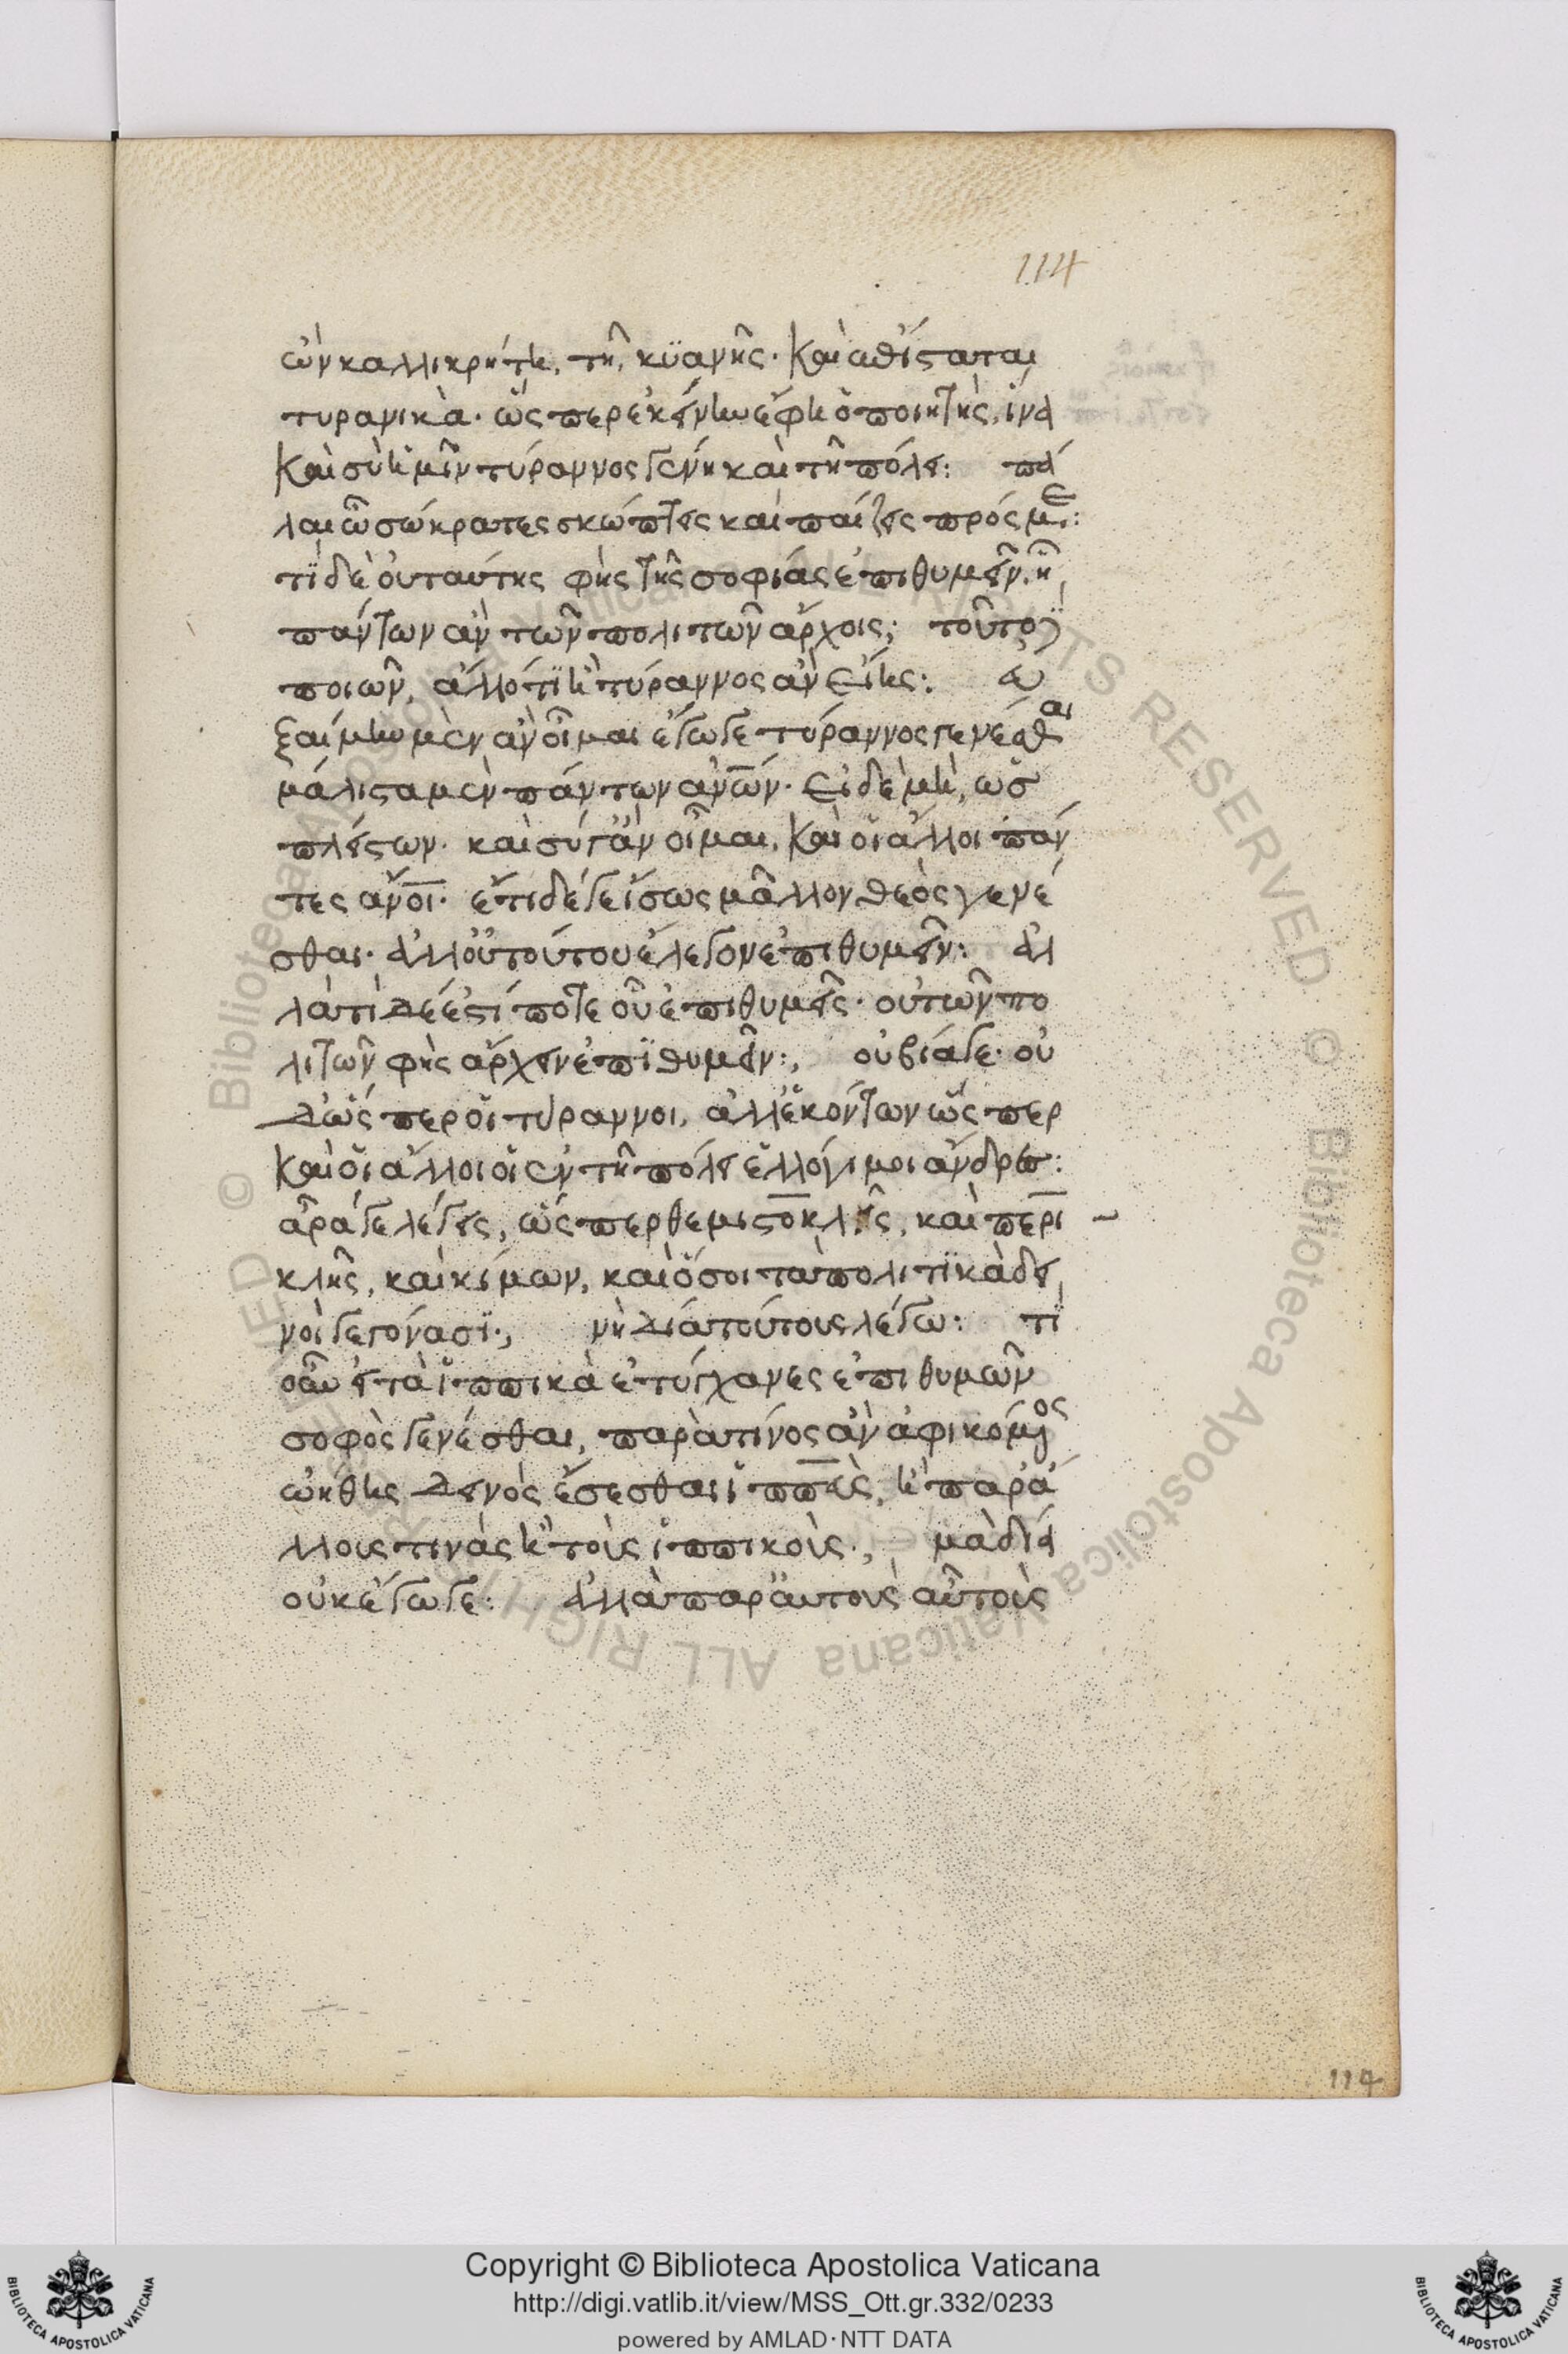 114
ὢν καλλικρήτη, τῆ, κϋανῆς· Καὶ ωθίσταται
τυρανικὰ· ὥς περ εκείνην εφη ὁ ποιητὴς, ἵνα
Καὶ σὺ ἡμῖν τύραννος γένη καὶ τῆ πόλει: πά
λαι ὦ σώκρατες σκώπτεις καὶ παίζεις πρός με:
τϊ δὲ οὐ ταύτης φὴς τῆς σοφιάς ἐπιθυμεῖν, ἧ
πάντων ἂν τῶν πολιτῶν άρχοις; τοῦτο
ποιῶν, ἀλλό τϊ ἢ τύραννος ἂν Είης: ἐυ
ξαίμην μὲν ἂν οἶμαι ἔγωγε τύραννος γενέσθαι
μάλιστα μὲν πάντων ανων· Εἰ δὲ μὴ, ὡσ
πλείστων· καὶ σύ γ ἂν οἶμαι, Καὶ οἱ ἄλλοι πάν
τες ανοι· ἔτι δέ γε ἴσως μᾶλλον θεὸς γενέ
σθαι· ἀλλ οὐ τούτου ἔλεγον ἐπιθυμεῖν: ἀλ
λὰ τὶ δέ ἐστί ποτε οὗ ἐπιθυμεῖς· οὐ τῶν πο
λιτῶν φὴς ἄρχειν ἐπϊθυμεῖν:, οὐ βία γε· οὐ
δ ὥς περ οἱ τύραννοι, ἀλλ ἑκόντων ὥς περ
Καὶ οἱ ἄλλοι οἱ ἐν τῆ πόλει ἐλλόγιμοι άνδρες:
ἆρά γε λέγεις, ὥς περ θεμιστοκλῆς, καὶ περι
κλῆς, καὶ κίμων, καὶ ὅσοι τὰ πολιτϊκὰ δει
νοὶ γεγόνασϊ·, νὴ Δία τούτους λέγω: τϊ
οὖν εἰ τὰ ἱππικὰ ἐτύγχανες ἐπιθυμῶν
σοφὸς γενέσθαι, παρὰ τίνος ἂν ἀφικόμενος
ὠήθης δεινὸς ἔσεσθαι ἱππεὺς, ἢ παρ ἄ
λλους τινὰς ἢ τοὺς ἱππικοὺς·, μὰ δία
οὐκ ἔγωγε: ἀλλὰ παρ ἀυτοὺς αὖ τοὺς
114
Copyright © Biblioteca Apostolica Vaticana
http://digi.vatlib.it/view/MSS_Ott.gr.332/0233
powered by AMLAD·NTT DATA